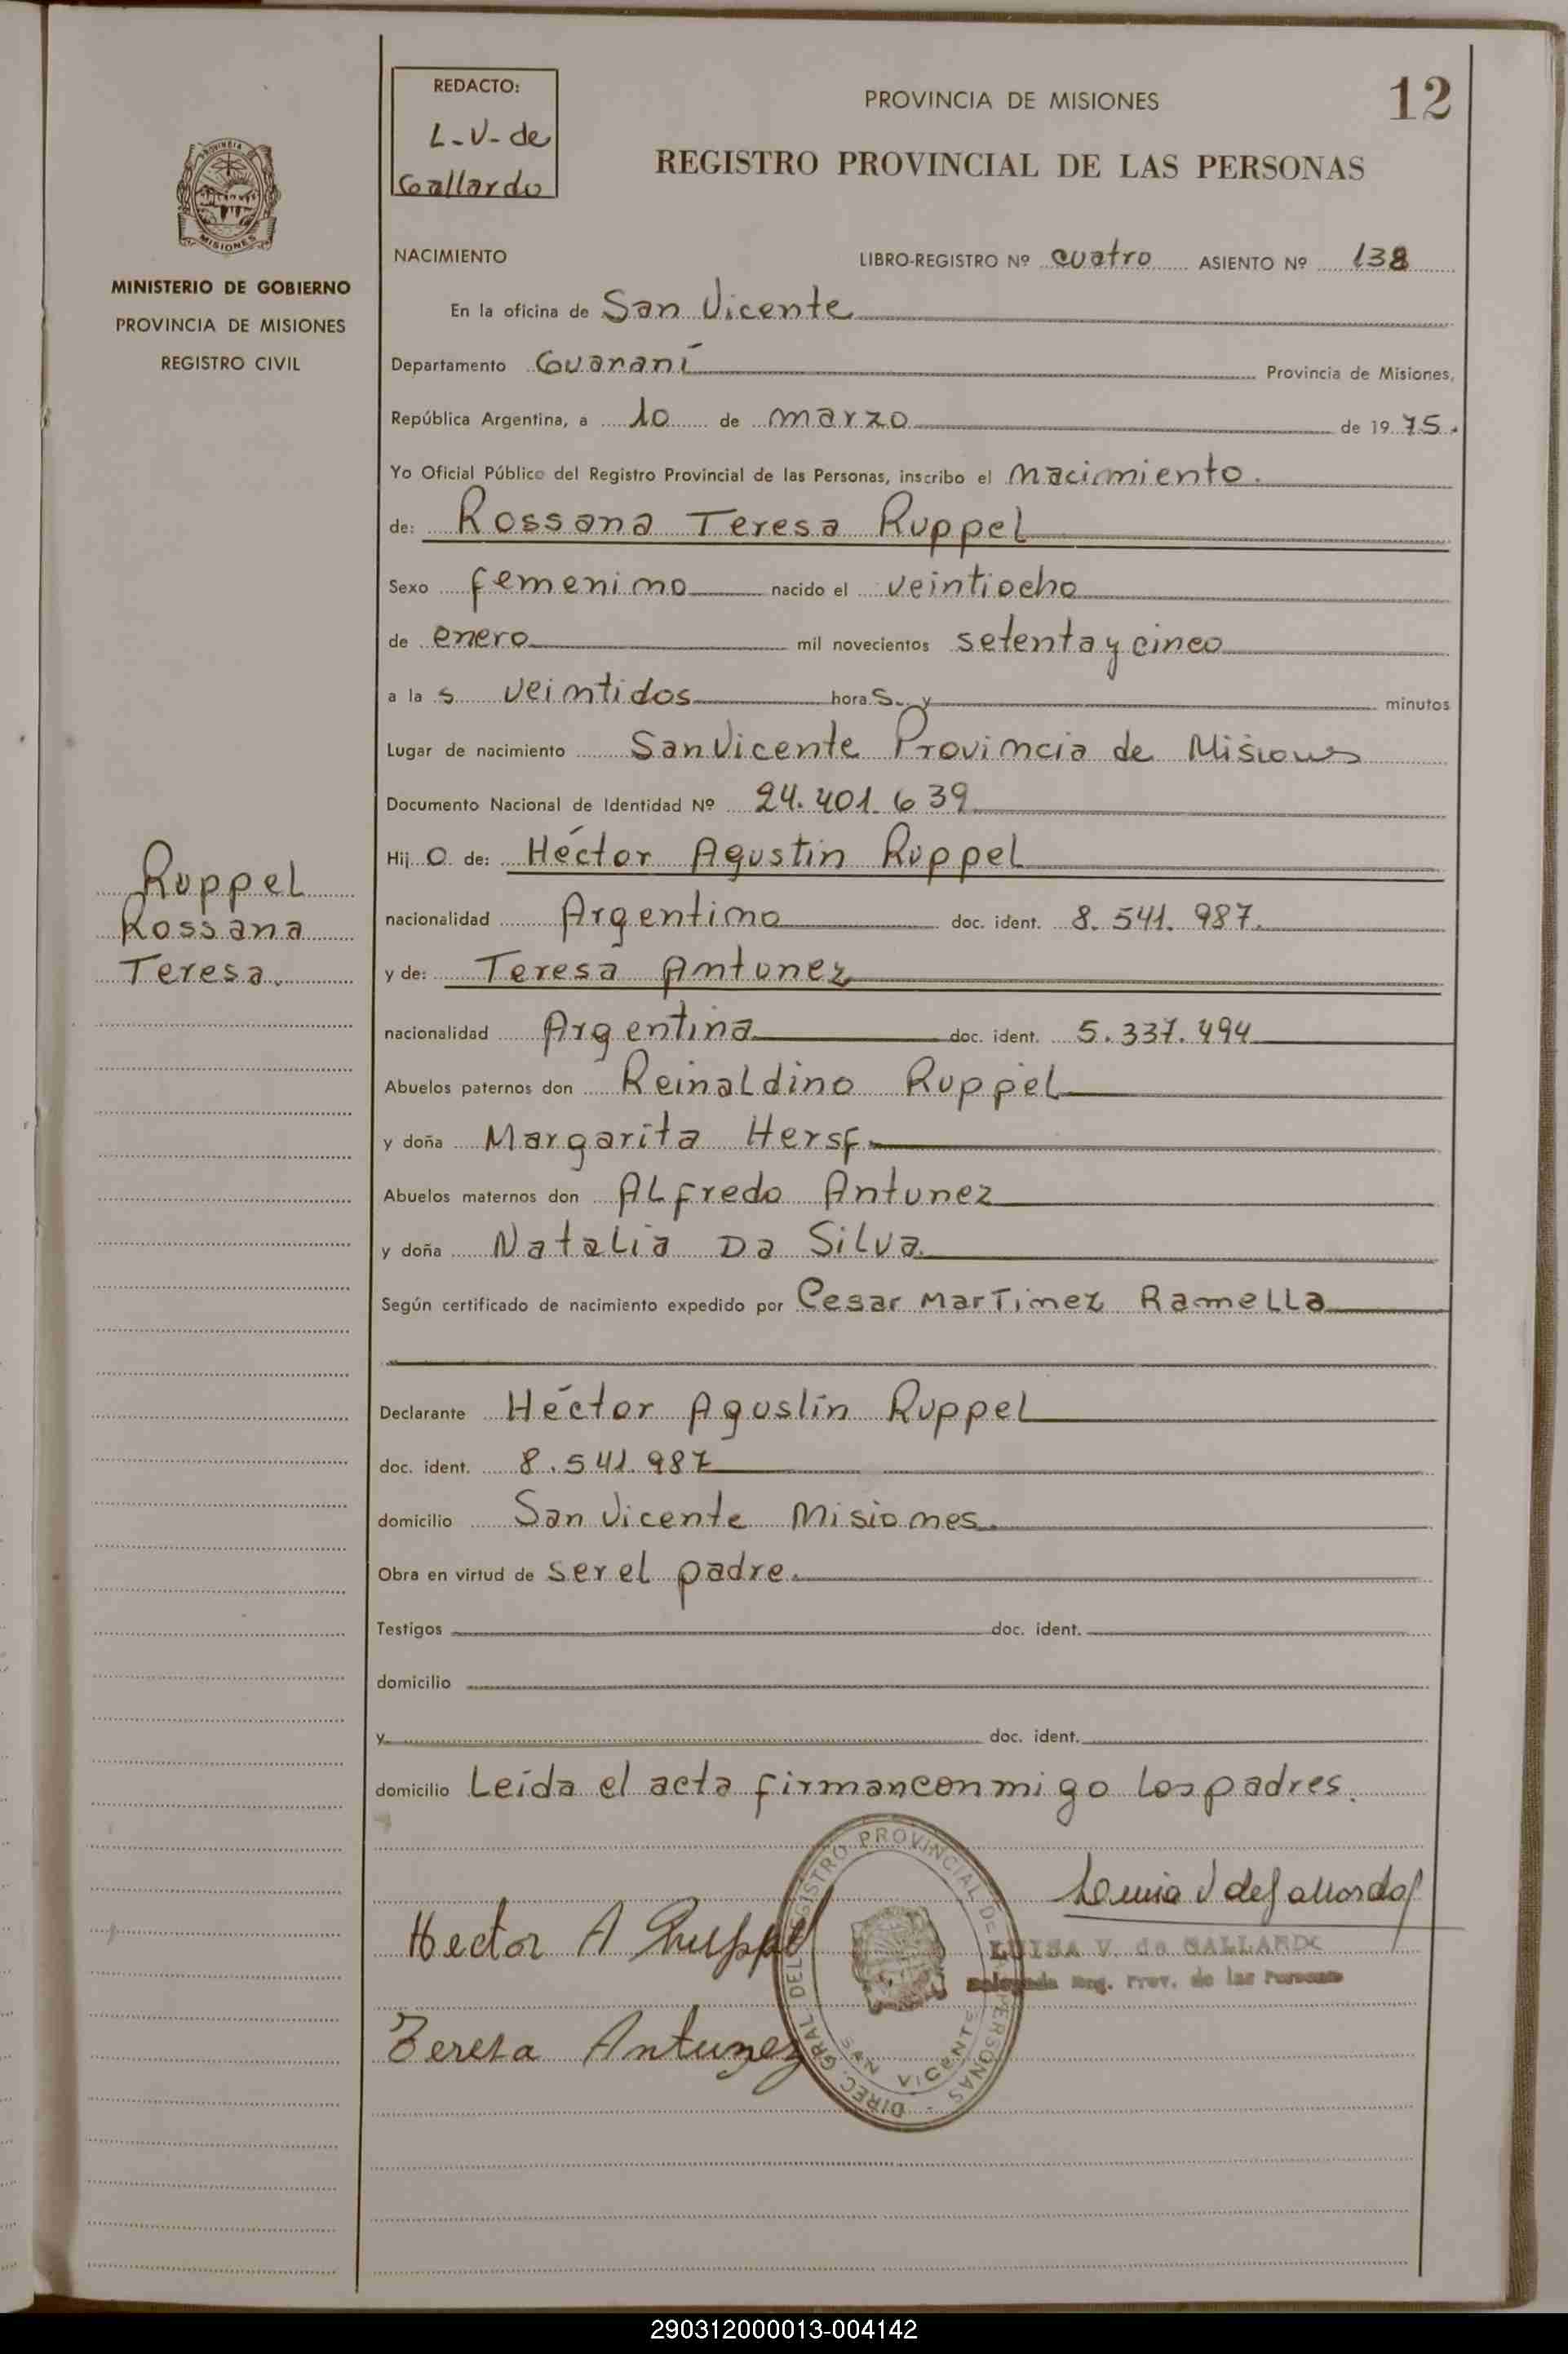 REDACTO:
L-V-de
Gallardo
PROVINCIA DE MISIONES
12
REGISTRO PROVINCIAL DE LAS PERSONAS
PROVINCIA DE
MISIONES
MINISTERIO DE GOBIERNO
PROVINCIA DE MISIONES
REGISTRO CIVIL
NACIMIENTO LIBRO-REGISTRO Nº cuatro ASIENTO Nº 138
En la oficina de San Vicente
Departamento Guaraní Provincia de Misiones,
República Argentina, a 10 de marzo de 1975.
Yo Oficial Público del Registro Provincial de las Personas, inscribo el nacimiento.
de: Rossana Teresa Ruppel
Sexo femenino nacido el veintiocho
de enero mil novecientos setenta y cinco
a la s veintidos hora s y minutos
Lugar de nacimiento San Vicente Provincia de Misiones
Documento Nacional de Identidad Nº 24.401.639
Hij o de: Héctor Agustín Ruppel
nacionalidad Argentino doc. ident. 8.541.987.
y de: Teresa Antunez
nacionalidad Argentina doc. ident. 5.337.494
Abuelos paternos don Reinaldino Ruppel
y doña Margarita Hersf.
Abuelos maternos don Alfredo Antunez
y doña Natalia Da Silva.
Según certificado de nacimiento expedido por Cesar Martinez Ramella
Declarante Héctor Agustín Ruppel
doc. ident. 8.541.987
domicilio San Vicente Misiones.
Obra en virtud de ser el padre.
Testigos doc. ident.
domicilio
y doc. ident.
domicilio Leída el acta firman conmigo los padres.
Ruppel
Rossana
Teresa.
Hector A Ruppel
LUISA V. de GALLARDO
Delegada Reg. Prov. de las Personas
Teresa Antunez
DIREC. GRAL. DEL REGISTRO PROVINCIAL DE LAS PERSONAS
SAN VICENTE
290312000013-004142